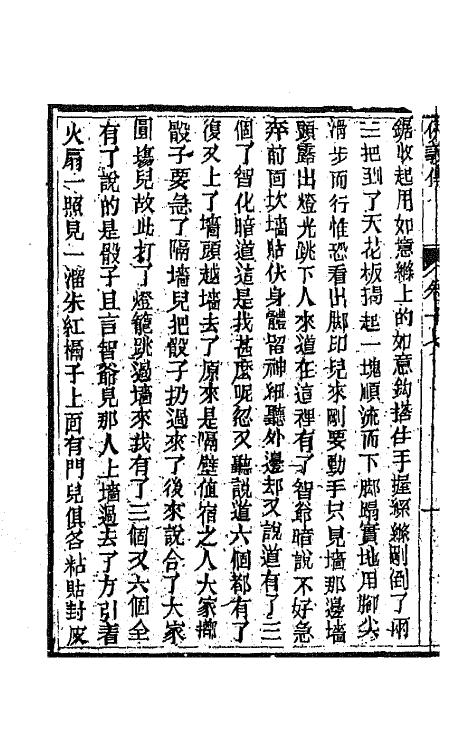 鋸收起用如意縧上的如意鈎搭住手握絨縧剛倒了兩
三把到了天花板揭起一塊順流而下脚蹋實地用脚尖
滑步而行惟恐看出脚印兒來剛要動手只見墻那邊墻
頭露出燈光跳下人來道在這裡有了智爺暗說不好急
奔前面坎墻貼伏身體留神細聽外邊却又說道有了三
個了智化暗道這是找甚麼呢忽又聽說道六個都有了
復又上了墻頭越墻去了原來是隔壁值宿之人大家擲
骰子要急了隔墻兒把骰子扔過來了後來說合了大家
圓塲兒故此打了燈籠跳過墻來找有了三個又六個全
有了說的是骰子且言智爺見那人上墻過去了方引着
火扇一照見一溜朱紅槅子上面有門兒俱各粘貼封皮